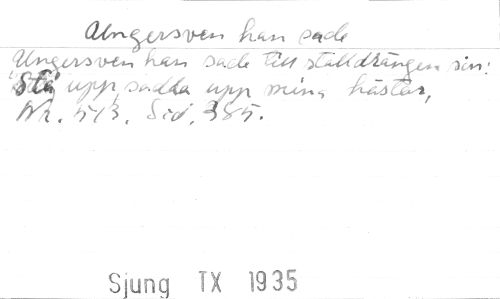 Ungersven han sade
Ungersven han sade till stalldrängen sin:
"Stå upp sadda upp mina hästar,
Nr. 513. Sid. 385.
Sjung TX 1935